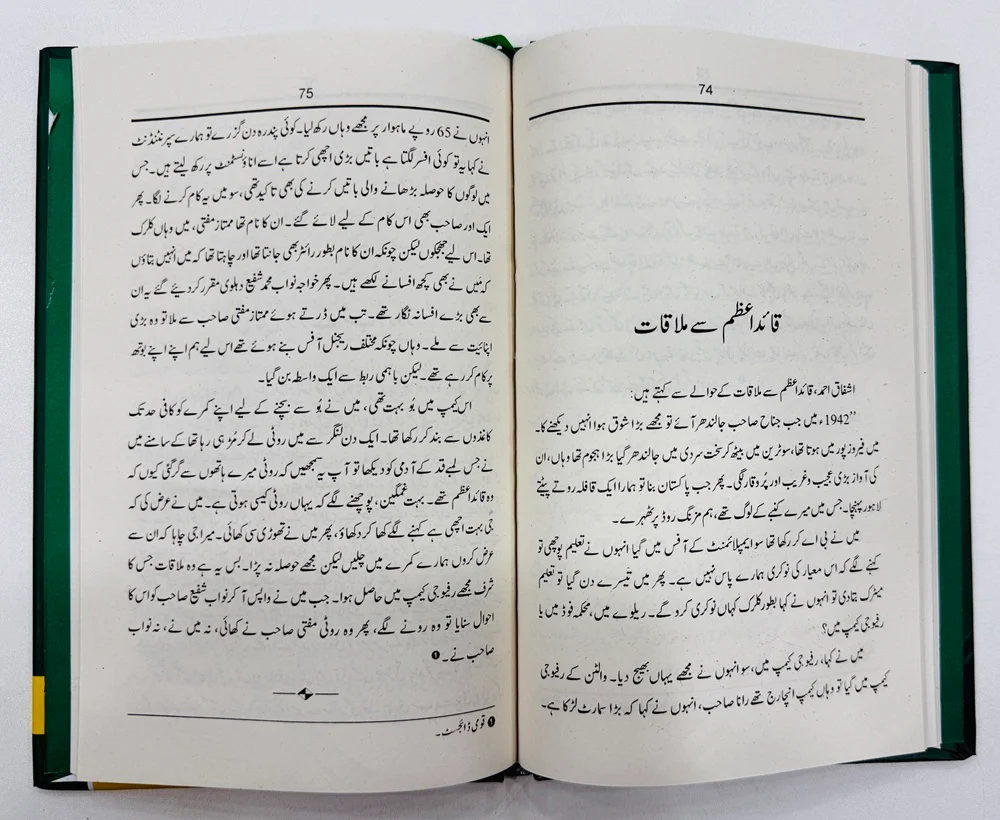 74
قائداعظم سے ملاقات
اشفاق احمد، قائداعظم سے ملاقات کے حوالے سے کہتے ہیں:
”1942ء میں جب جناح صاحب جالندھر آئے تو مجھے بڑا شوق ہوا انہیں دیکھنے کا۔
میں فیروز پور میں ہوتا تھا، سو ٹرین میں بیٹھ کر سخت سردی میں جالندھر گیا بڑا ہجوم تھا وہاں، ان
کی آواز بڑی عجیب و غریب اور پُروقار لگی۔ پھر جب پاکستان بنا تو ہمارا ایک قافلہ روتے پٹتے
لاہور پہنچا۔ جس میں میرے کنبے کے لوگ تھے، ہم مزنگ روڈ پر ٹھہرے۔
میں نے بی اے کر رکھا تھا سو ایمپلائمنٹ کے آفس میں گیا انہوں نے تعلیم پوچھی تو
کہنے لگے کہ اس معیار کی نوکری ہمارے پاس نہیں ہے۔ پھر میں تیسرے دن گیا تو تعلیم
میٹرک بتا دی تو انہوں نے کہا بطور کلرک کہاں نوکری کرو گے۔ ریلوے میں، محکمہ فوڈ میں یا
رفیوجی کیمپ میں؟
میں نے کہا، رفیوجی کیمپ میں، سو انہوں نے مجھے یہاں بھیج دیا۔ والٹن کے رفیوجی
کیمپ میں گیا تو وہاں کیمپ انچارج تھے رانا صاحب، انہوں نے کہا کہ بڑا سمارٹ لڑکا ہے۔
75
انہوں نے 65 روپے ماہوار پر مجھے وہاں رکھ لیا۔ کوئی پندرہ دن گزرے تو ہمارے سپرنٹنڈنٹ
نے کہا یہ تو کوئی افسر لگتا ہے باتیں بڑی اچھی کرتا ہے اسے اناؤنسمنٹ پر رکھ لیتے ہیں۔ جس
میں لوگوں کا حوصلہ بڑھانے والی باتیں کرنے کی بھی تاکید تھی، سو میں یہ کام کرنے لگا۔ پھر
ایک اور صاحب بھی اس کام کے لیے لائے گئے۔ ان کا نام تھا ممتاز مفتی، میں وہاں کلرک
تھا۔ اس لیے جھجکوں لیکن چونکہ ان کا نام بطور رائٹر بھی جانتا تھا اور چاہتا تھا کہ میں انہیں بتاؤں
کہ میں نے بھی کچھ افسانے لکھے ہیں۔ پھر خواجہ نواب محمد شفیع دہلوی مقرر کر دیئے گئے یہ ان
سے بھی بڑے افسانہ نگار تھے۔ تب میں ڈرتے ہوئے ممتاز مفتی صاحب سے ملا تو وہ بڑی
اپنائیت سے ملے۔ وہاں چونکہ مختلف ریجنل آفس بنے ہوئے تھے اس لیے ہم اپنے اپنے بوتھ
پر کام کر رہے تھے۔ لیکن باہمی ربط سے ایک واسطہ بن گیا۔
اس کیمپ میں بُو بہت تھی، میں نے بُو سے بچنے کے لیے اپنے کمرے کو کافی حد تک
کاغذوں سے بند کر رکھا تھا۔ ایک دن لنگر سے میں روٹی لے کر مُڑ ہی رہا تھا کے سامنے میں
نے جس لمبے قد کے آدمی کو دیکھا تو آپ یہ سمجھیں کہ روٹی میرے ہاتھوں سے گر گئی کیوں کہ
وہ قائداعظم تھے۔ بہت غمگین، پوچھنے لگے کہ یہاں روٹی کیسی ہوتی ہے۔ میں نے عرض کی کہ
جی بہت اچھی ہے کہنے لگے کھا کر دکھاؤ، پھر میں نے تھوڑی سی کھائی۔ میرا جی چاہا کہ ان سے
عرض کروں ہمارے کمرے میں چلیں لیکن مجھے حوصلہ نہ پڑا۔ بس یہ ہے وہ ملاقات جس کا
شرف مجھے رفیوجی کیمپ میں حاصل ہوا۔ جب میں نے واپس آ کر نواب شفیع صاحب کو اس کا
احوال سنایا تو وہ رونے لگے، پھر وہ روٹی مفتی صاحب نے کھائی، نہ میں نے، نہ نواب
صاحب نے۔ ❶
❶ قومی ڈائجسٹ۔